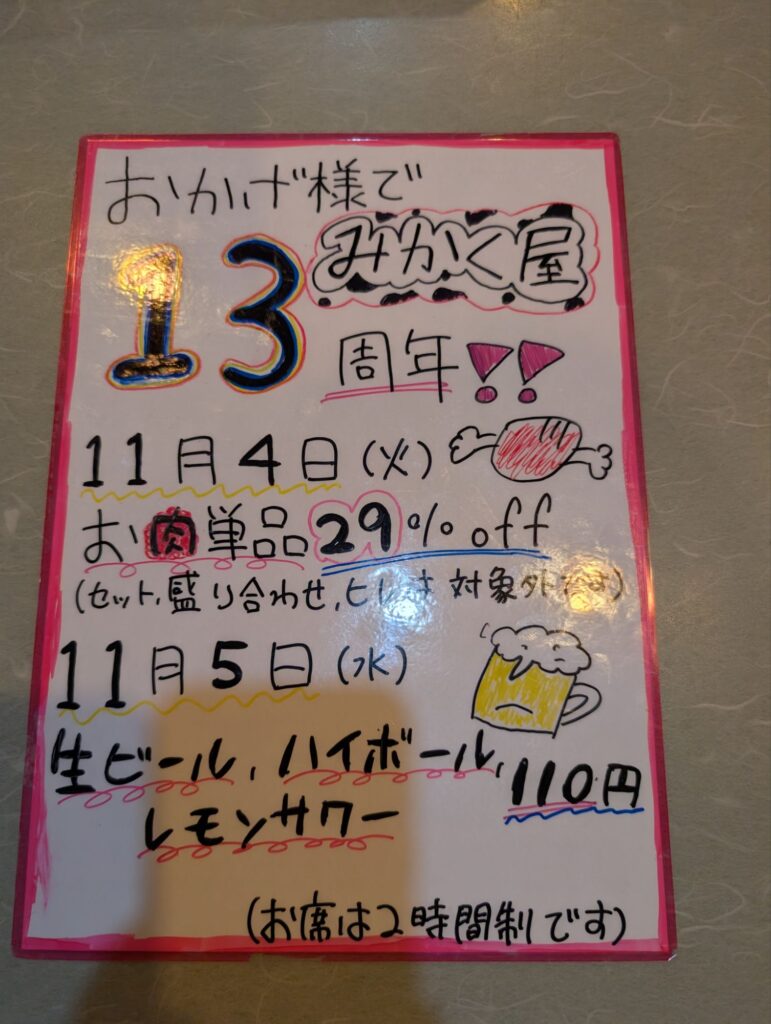 おかげ様で
みかく屋
13周年!!
11月4日(火)
お肉単品29%off
(セット,盛り合わせ,ヒレは対象外です)
11月5日(水)
生ビール,ハイボール,
レモンサワー 110円
(お席は2時間制です)